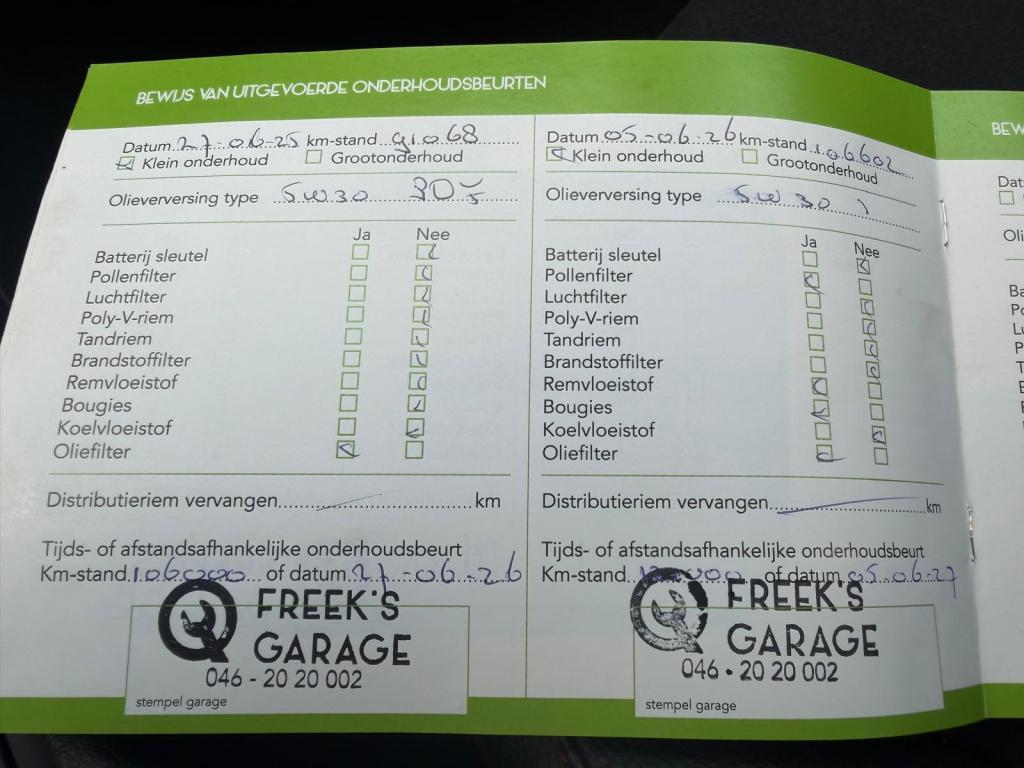 BEWIJS VAN UITGEVOERDE ONDERHOUDSBEURTEN
Datum 27-06-25 km-stand 91068
Klein onderhoud Grootonderhoud
Olieverversing type 5W30
Ja Nee
Batterij sleutel
Pollenfilter
Luchtfilter
Poly-V-riem
Tandriem
Brandstoffilter
Remvloeistof
Bougies
Koelvloeistof
Oliefilter
Distributieriem vervangen km
Tijds- of afstandsafhankelijke onderhoudsbeurt
Km-stand 106000 of datum 27-06-26
FREEK'S
GARAGE
046 - 20 20 002
stempel garage
Datum 05-06-26 km-stand 106602
Klein onderhoud Grootonderhoud
Olieverversing type 5W30
Ja Nee
Batterij sleutel
Pollenfilter
Luchtfilter
Poly-V-riem
Tandriem
Brandstoffilter
Remvloeistof
Bougies
Koelvloeistof
Oliefilter
Distributieriem vervangen km
Tijds- of afstandsafhankelijke onderhoudsbeurt
Km-stand of datum 05-06-27
FREEK'S
GARAGE
046 • 20 20 002
stempel garage